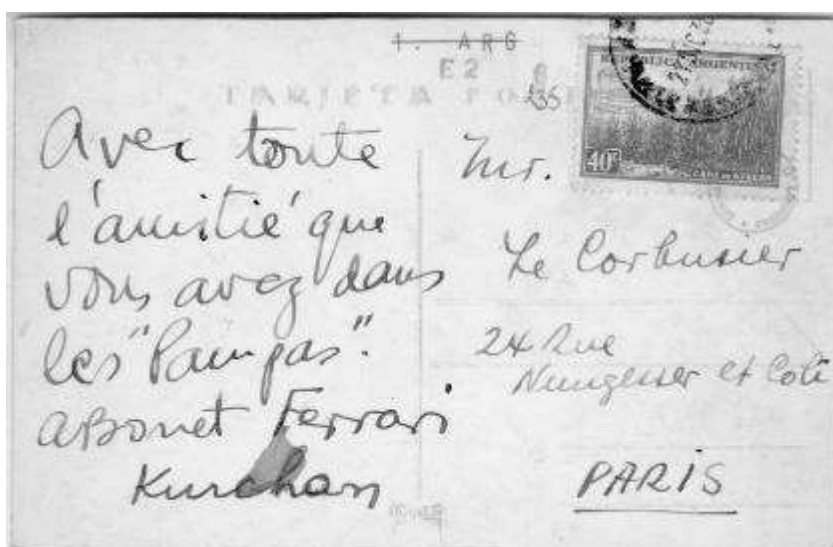 1. ARG
E2 6
TARJETA PO
235
REPUBLICA ARGENTINA
40c
Avec toute
l'amistié que
vous avez dans
les "Pampas".
ABonet Ferrari
Kurchan
Mr.
Le Corbusier
24 Rue
Nungesser et Coli
PARIS